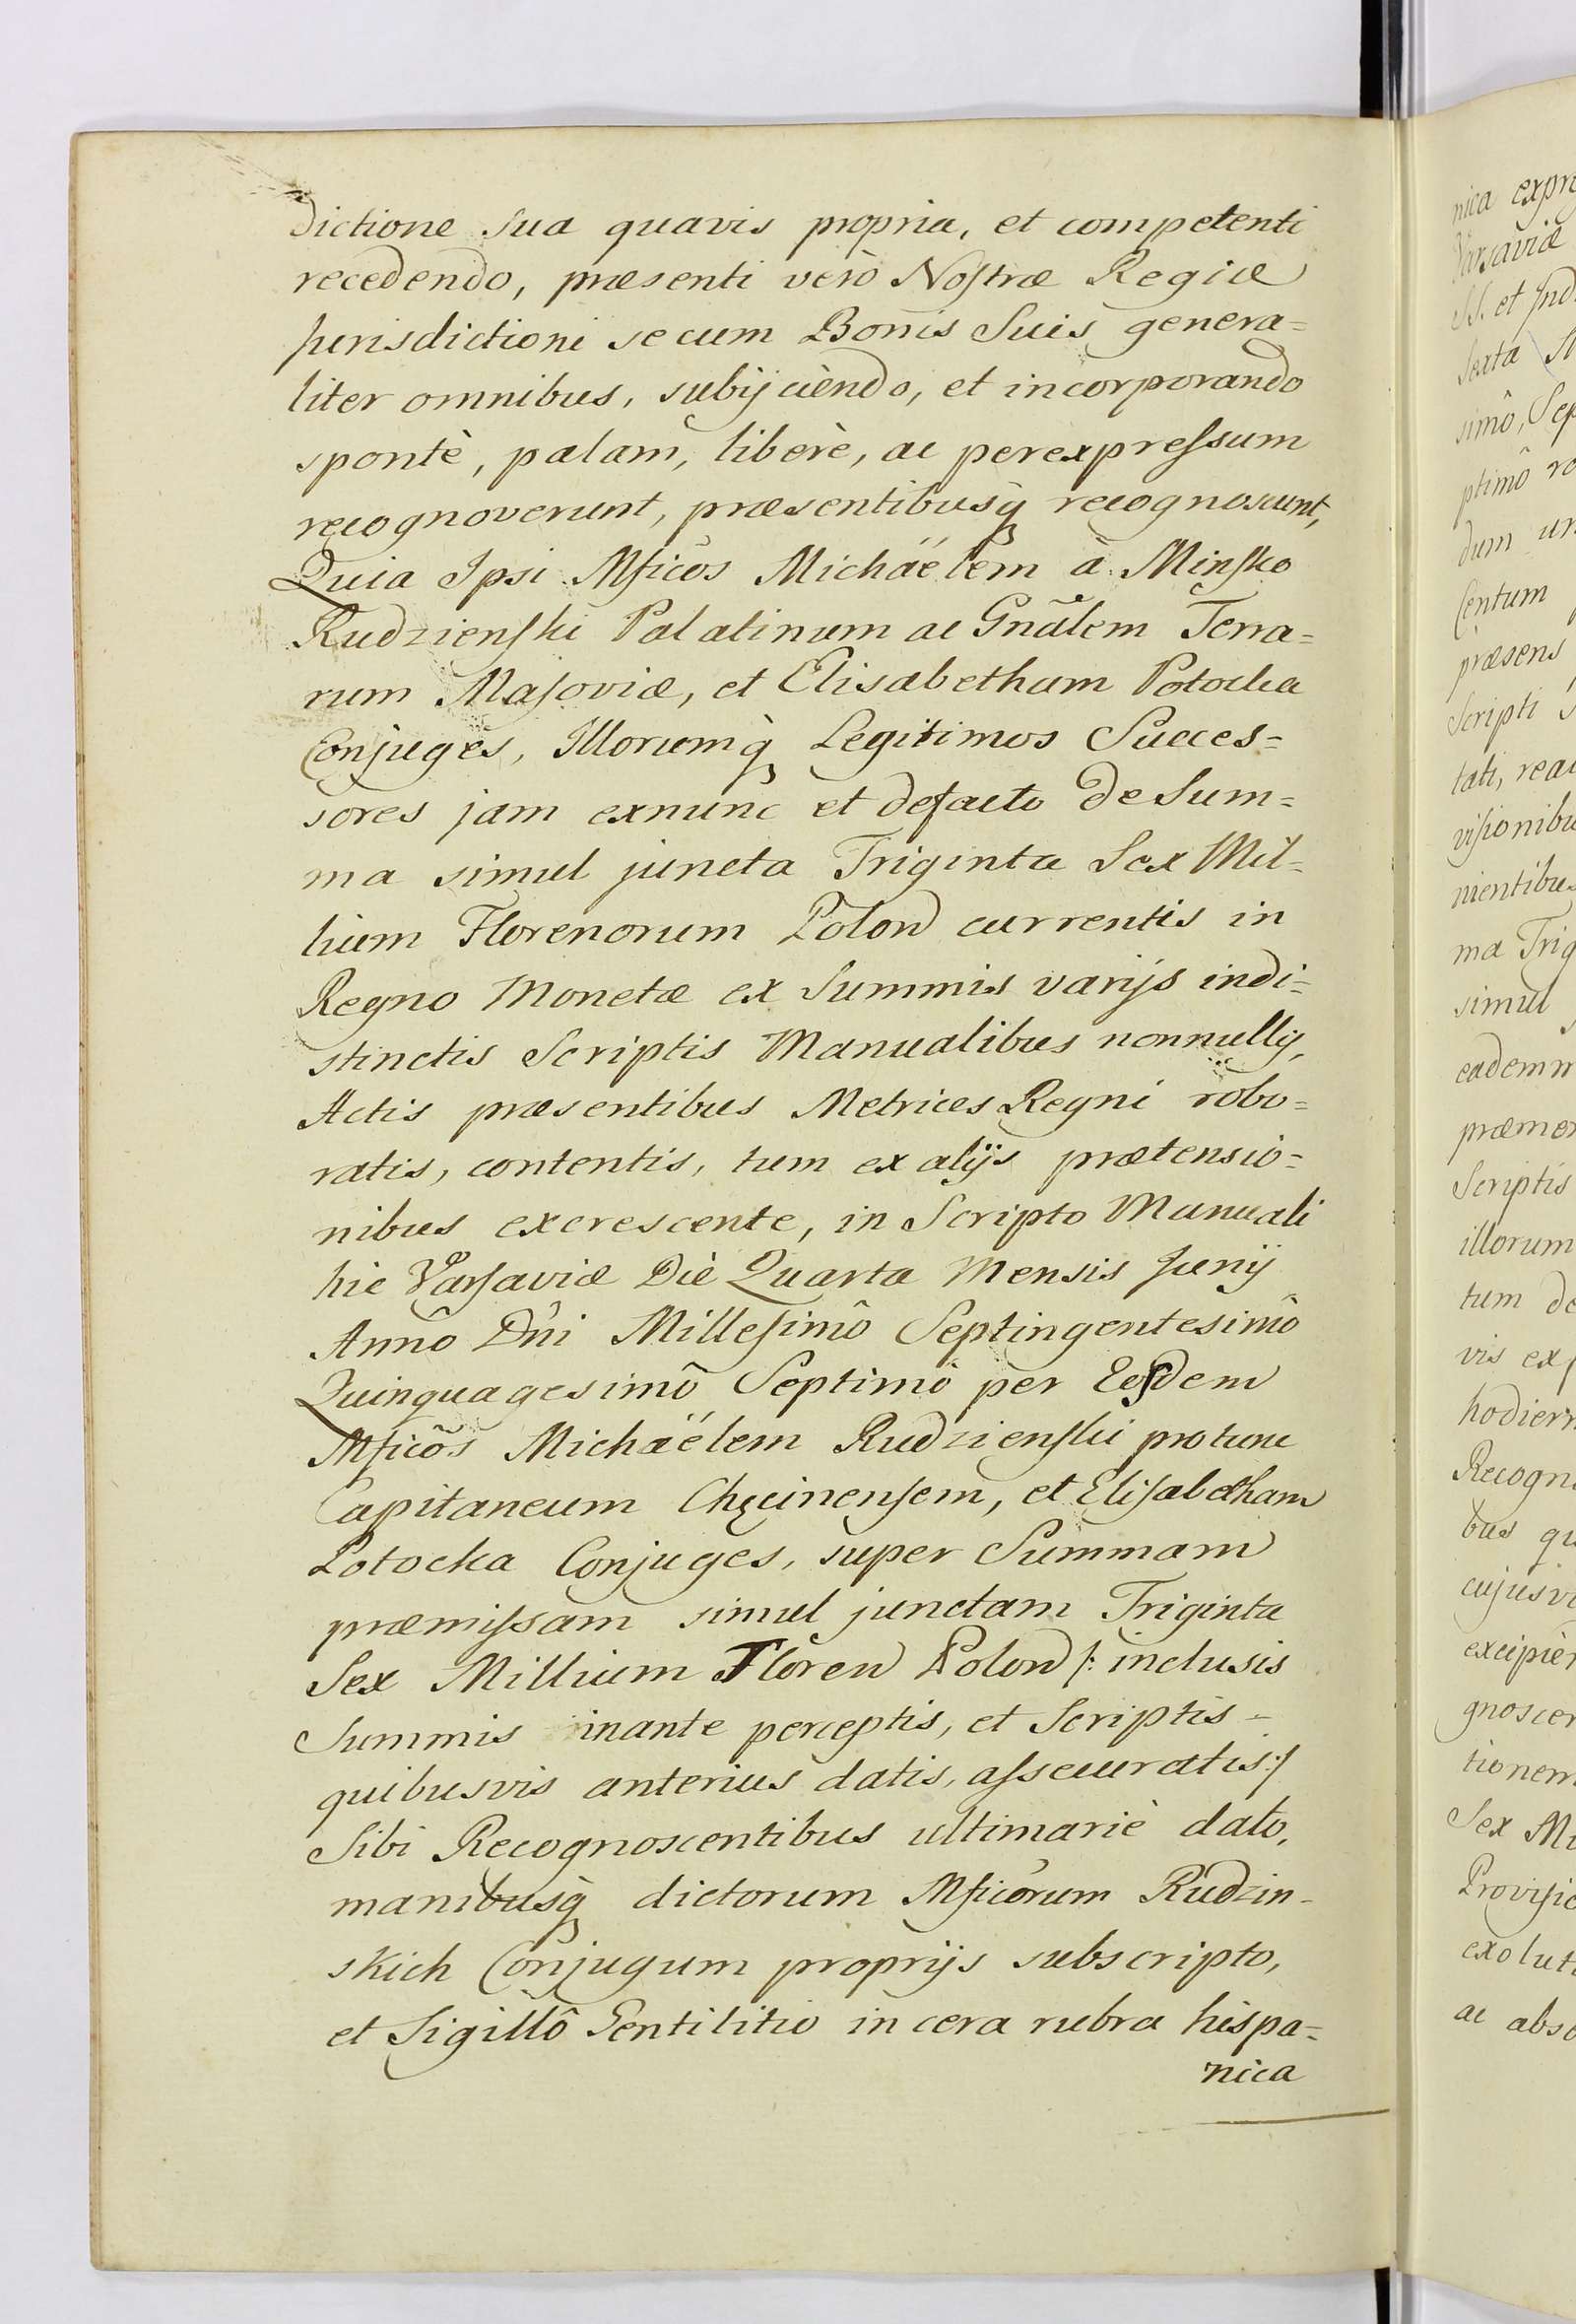 dictione sua quavis propria, et competenti
recedendo, præsenti verò Nostræ Regiæ
Jurisdictioni se cum Bonis Suis genera=
liter omnibus, subijciendo, et incorporando
spontè, palam, liberè, ac per expressum
recognoverunt, præsentibusq̀ recognoscunt,
Quia Ipsi Mficos Michäelem à Minsko
Rudzienski Palatinum ac Gnãlem Terra=
rum Masoviæ, et Elisabetham Potocka
Conjuges, Illorumq̀ Legitimos Succes=
sores jam exnunc et defacto de Sum=
ma simul juncta Triginta Sex Mil=
lium Florenorum Polon currentis in
Regno Monetæ ex Summis varijs indi=
stinctis Scriptis Manualibus nonnullis,
Actis præsentibus Metrices Regni robo=
ratis, contentis, tum ex alijs prætensio=
nibus excrescente, in Scripto Manuali
hic Varsaviæ Die Quarta Mensis Junij
Annô Dñi Millesimô Septingentesimô
Quinquagesimô Septimô per Eosdem
Mficôs Michäelem Rudzienski protunc
Capitaneum Chęcinensem, et Elisabetham
Potocka Conjuges, super Summam
præmissam simul junctam Triginta
Sex Millium Floren Polon /: inclusis
Summis inante perceptis, et Scriptis =
quibusvis anterius datis, assecuratis :/
Sibi Recognoscentibus ultimariè dato,
manibusq̀ dictorum Mficorum Rudzin=
skich Conjugum proprijs subscripto,
et Sigillô Gentilitio in cera rubra hispa=
nica
nica
Varsaviæ
SS. et Ind
Sexta
simô, Sep
ptimô ro
dum
Centum
præsens
Scripti
tati, rea
visionibu
nientibus
ma Trig
simul
eadem
præmen
Scriptis
illorum
tum de
vis ex
hodiern
Recogn
bus qu
cujusvi
excipien
gnoscen
tionem
Sex Mi
Provisio
exolut
ac abso